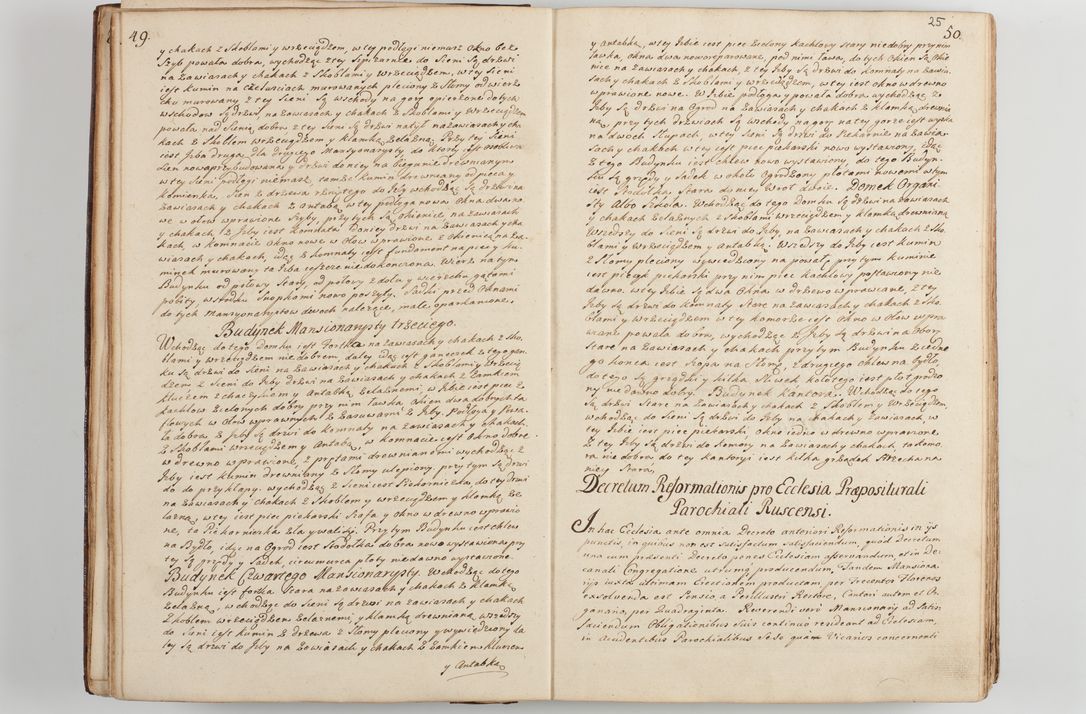 49.
y chakach z Skoblami y wrzeciądzem, w tey podłogi niemasz Okno bez
szyb powała dobra, wychodząc z tey Spiżarnie do Sieni Są drzwi
na zawiasach y chakach z Skoblami y wrzeciądzem, w tey Sieni
iest kumin na czeluściach murowanych pleciony z Słomy od wierz
chu murowany, z tey Sieni Są wschody na gorę opierzone do tych
wschodow Są drzwi, na zawiasach y chakach z Skoblami y wrzeciądzem
powała nad Sienią dobra z tey Sieni Są drzwi na tył na zawiasach y cha
kach z Skoblem wrzeciądzem y klamką żelazną. Przy tey Sieni
iest Izba druga dla drugiego Mansyonarysty do ktorey iest osobliwa
Sien nowo przybudowana y drzwi do niey na biegunie drewnianym
w tey Sieni podłogi niemasz, tamże kumin drewniany od pieca y
kominka, Sien z drzewa rzniętego do Izby wchodząc Są drzwi na
zawiasach y chakach z Antabą w tey podłoga nowa Okna dwa no
we w ołow wprawione Szyby, przy tych Są okienice na zawiasach
y chakach, z Izby iest komnata do niey drzwi na zawiasach y cha
kach, w komnacie Okno nowe w ołow wprawione z Okienicą na za
wiasach y chakach, idąc z komnaty iest fundament na piec y ku
minek murowany ta Izba ieszcze niedokonczona. Wierzch na tym
Budynku od połowy Stary, od połowy z dołu y wierzchu gatami
pobity, w środku Snopkami nowo poszyty. Sadki przed Oknami
do tych Mansyonarystow dwoch należące, małe, oparkanione.
Budynek Mansionarysty trzeciego.
Wchodząc do tego Domku iest Fortka na zawiasach y chakach z Sko
blami y wrzeciądzem niedobrem, daley idąc iest ganeczek z tego gan
ku Są drzwi do Sieni na zawiasach y chakach z Skoblami y wrzecią
dzem, z Sieni do Izby drzwi na zawiasach y chakach z Zamkiem
kluczem z chaczykiem y Antabką żelaznemi, w Izbie iest piec z
kachlow zielonych dobry przy nim Ławka Okien dwa dobrych ta
flowych w ołow wprawnych z zasuwami z Izby. Podłoga y Powa
ła dobra, z Izby Są drzwi do komnaty na zawiasach y chakach
z Skoblami wrzeciądzem y Antabą, w komnacie iest Okno dobre
w drewno wprawione, z prętami drewnianemi wychodząc z
Izby iest kumin drewniany z Słomy ulepiony, przy tym Są drzwi
do do przykłapy. wychodząc z Sieni iest Piekarnia zła, do tey drzwi
na zawiasach y chakach z Skoblem y wrzeciądzem y klamką że
lazną, w tey iest piec piekarski Szafa y okno w drewno wprawio
ne, ta Piekarnia zła y waliła. Przy tym Budynku iest chlew
na Bydło, idąc na Ogrod iest Stodołka dobra nowo wystawiona przy
tey Są grzędy y Sadek, circumcirca płoty niedawno wystawione.
Budynek Czwartego Mansionarysty. Wchodząc do tego
Budynku iest fortka Stara na zawiasach y chakach z klamką
żelazną, wchodząc do Sieni Są drzwi na zawiasach y chakach
Skoblem wrzeciądzem żelaznemi, y klamką drewnianą wszedszy
do Sieni iest kumin z drzewa z Słomy pleciony y wywiedziony da
ley Są drzwi do Izby na zawiasach y chakach z Zamkiem kluczem
y Antabką
25
50.
y antabką, w tey Izbie iest piec zielony kachlowy Stary niedobry przy nim
Ławka, okna dwa nowo reparowane, pod nimi Ława, do tych Okien Są Okie
nice na zawiasach y chakach, z tey Izby Są drzwi do komnaty na zawia
sach y chakach z Skoblami y wrzeciądzem, w tey iest okno w drewno
wprawione nowe. W Izbie podłoga y powała dobra, wychodząc ze
Izby Są drzwi na Ogrod na zawiasach y chakach z klamką drewnia
ną, przy tych drzwiach Są wschody na gorę na tey gorze iest wystka
na dwoch Słupach, w tey Sieni Są drzwi do Piekarnie na zawia
sach y chakach w tey iest piec piekarski nowo wystawiony, idąc
z tego Budynku iest chlew nowo wystawiony, do tego Budyn
ku Są grzędy y Sadek w około Ogrodzony płotami nowemi w tym
iest Budolka Stara do niey Wrot dwoie. Domek Organi
sty Albo Szkola. Wchodząc do tego domku Są drzwi na zawiasach
y chakach żelaznych z Skoblami wrzeciądzem y klamką drewnianą
Wszedszy do Sieni Są drzwi do Izby, na zawiasach y chakach z Sko
blami y wrzeciądzem y Antabką. Wszedszy do Izby iest kumin
z Słomy pleciony wywiedziony na pował, przy tym kuminie
iest piecyk piekarski przy nim piec kachlowy postawiony nie
dawno. w tey Izbie Są dwa Okna w drzewo wprawne, z tey
Izby Są drzwi do komnaty Stare na zawiasach y chakach z Sko
blami y wrzeciądzem w tey komorze iest okno w ołow wpra
wione powała dobra, wychodząc z Izby Są drzwi na dwor
Stare na zawiasach y chakach przy tym Budynku z iedne
go konca iest Szopa na Słomę, z drugiego chlew na bydło,
do tego Są grządki y kilka Sliwek koło tego iest płot grodzo
ny niedawno dobry. Budynek kantora. Wchodząc do niego
Są drzwi Stare na zawiasach y chakach z Skoblem y wrzeciądzem,
wchodząc do Sieni Są drzwi do Izby na chakach y zawiasach w
tey Izbie iest piec piekarski okno iedno w drewno wprawione,
Z tey Izby Są drzwi do komory na zawiasach y chakach ta komo
ra nie dobra do tey kantoryi iest kilka grządek Strzecha na
niey Stara,
Decretum Reformationis pro Ecclesia Præpositurali
Parochiali Ruscensi.
In hac Eclesia ante omnia Decreto anteriori Reformationis in ijs
punctis, in quibus non est Satisfactum satisfaciendum, quod Decretum
una cum præsenti Decreto penes Eclesiam asservandum, et in De
canali Congregatione utrumq producendum, Tandem Mansiona
rijs iuxta ultimam Erectionem productam, per Trecentos Florenos
exsolvenda est Pensio, a Perillustri Rectore, Cantori autem et Or
ganario, per Quadraginta. Reverendi verò Mansionarij ad Satis
faciendum Obligationibus Suis continuò resideant ad Eclesiam,
in Accidentibus Parochialibus Se Se quàm Vicarios concernenti